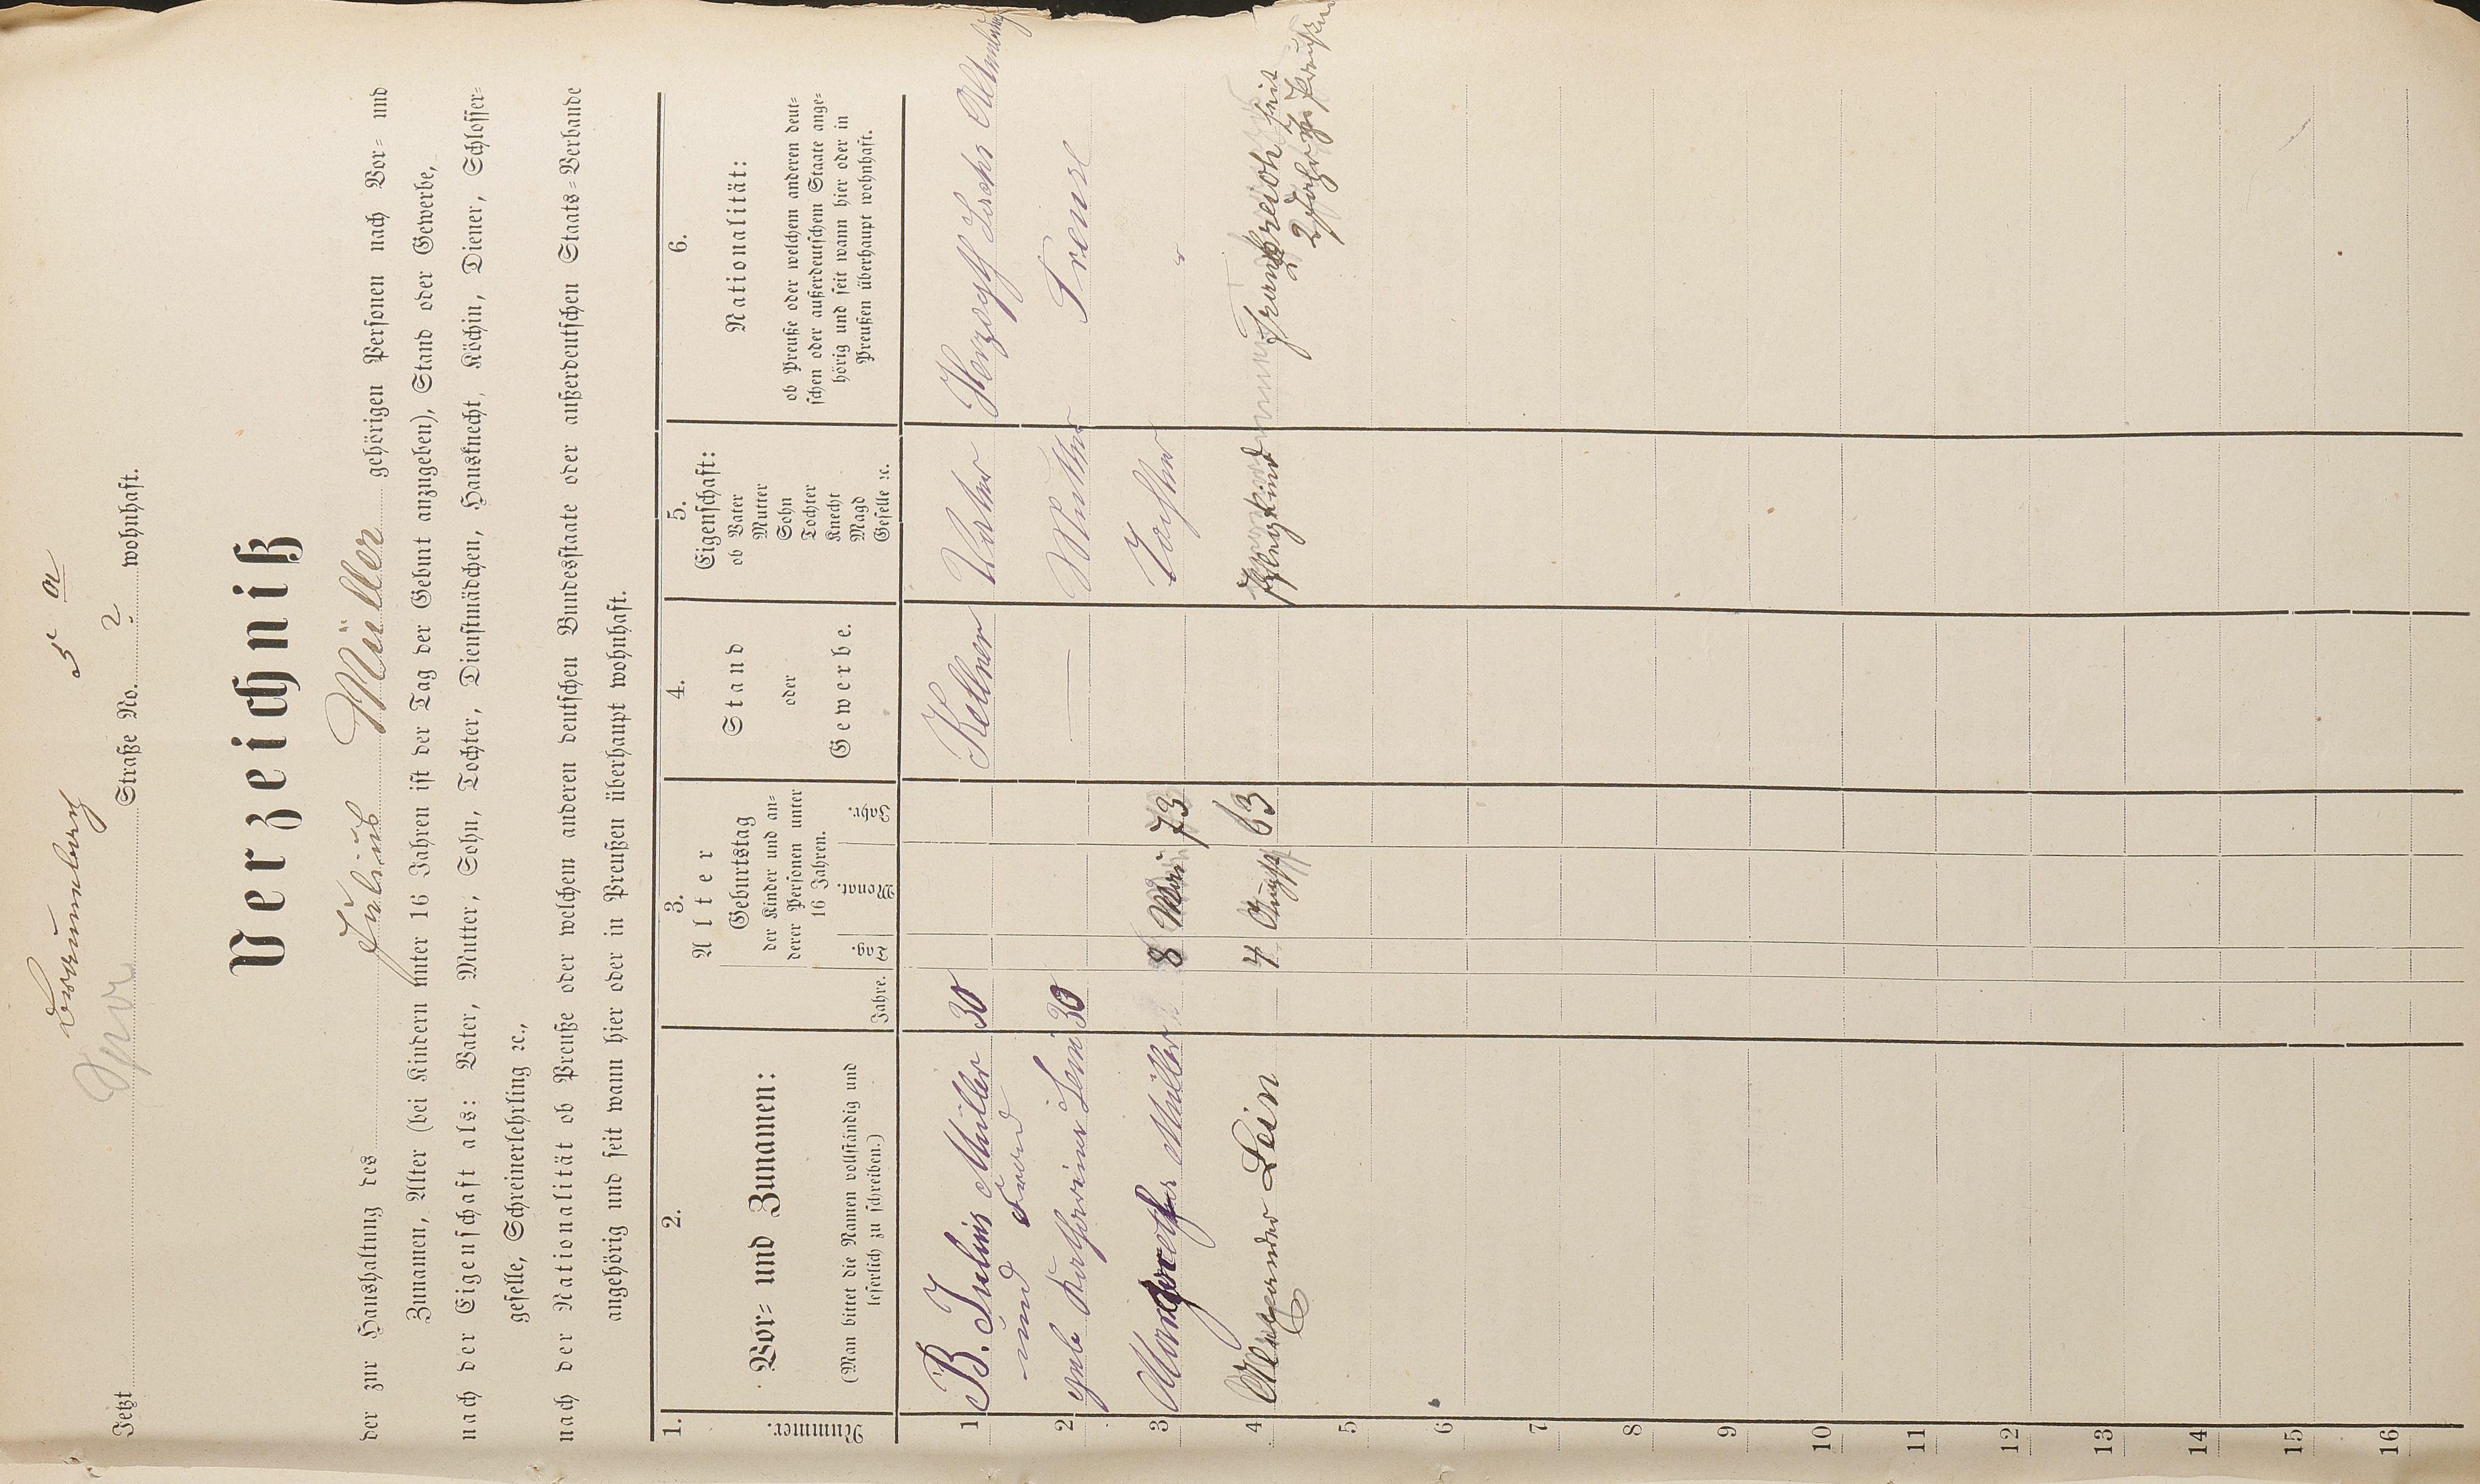 5 a
Jetzt Straße No. 2 wohnhaft.
Verzeichniß
der zur Haushaltung des Julius Müller gehörigen Personen nach Vor- und
Zunamen, Alter (bei Kindern unter 16 Jahren ist der Tag der Geburt anzugeben), Stand oder Gewerbe,
nach der Eigenschaft als: Vater, Mutter, Sohn, Tochter, Dienstmädchen, Hausknecht, Köchin, Diener, Schlosser-
geselle, Schreinerlehrling ꝛc.,
nach der Nationalität ob Preuße oder welchem anderen deutschen Bundesstaate oder außerdeutschen Staats-Verbande
angehörig und seit wann hier oder in Preußen überhaupt wohnhaft.
1.
Nummer.
2.
Vor- und Zunamen:
(Man bittet die Namen vollständig und
leserlich zu schreiben.)
3.
Alter
Jahre.
Geburtstag
der Kinder und an-
derer Personen unter
16 Jahren.
Tag. Monat. Jahr.
4.
Stand
oder
Gewerbe.
5.
Eigenschaft:
ob Vater
Mutter
Sohn
Tochter
Knecht
Magd
Geselle ꝛc.
6.
Nationalität:
ob Preuße oder welchem anderen deut-
schen oder außerdeutschem Staate ange-
hörig und seit wann hier oder in
Preußen überhaupt wohnhaft.
1 B. Julius Müller 30 Kellner Vater Herzogth Sachs Altenburg
und Frau
2 geb Katharina Lein 30 — Mutter Preuse
3 Margaretha Müller 8 Mai 73 Tochter "
4 Alexander Lein 4 August 63 Pflegkind Frankreich seit
2 Jahr in Preußen
5
6
7
8
9
10
11
12
13
14
15
16